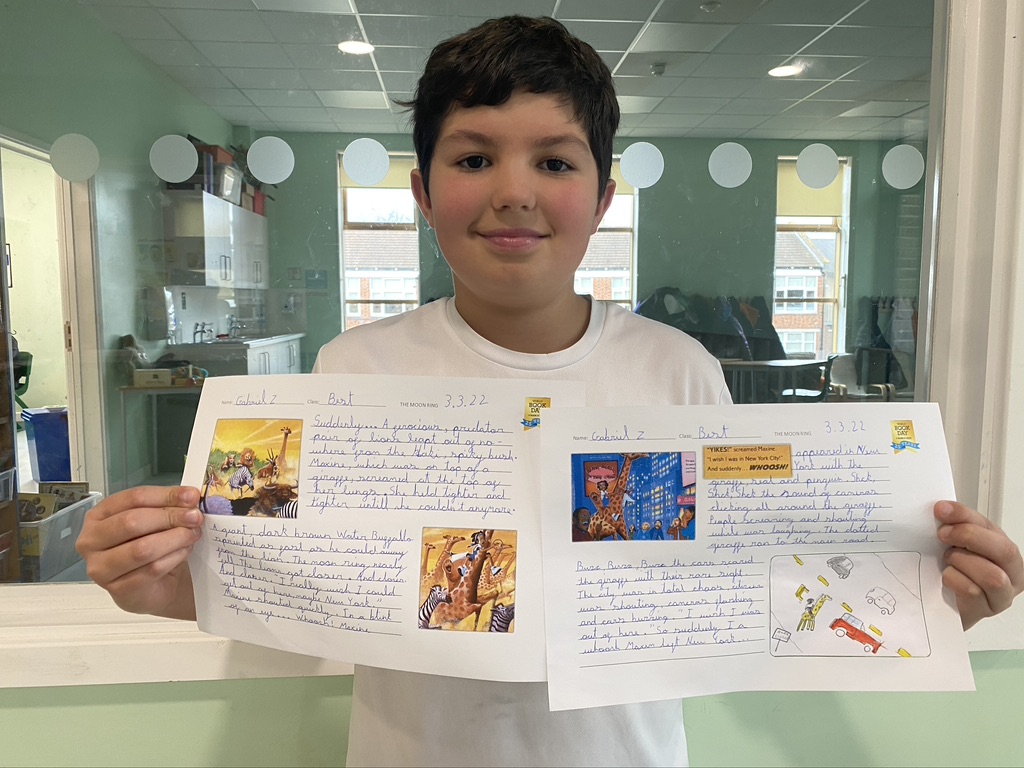 Name: Gabriel Z Class: Bert THE MOON RING 3.3.22
WORLD
BOOK
DAY
Suddenly... A ferocious, predator
pair of lions leapt out of no-
where from the
Maxine, which was on top of a
giraffe screamed at the top of
her lungs. She held tighter and
tighter untill she couldn't anymore.
A giant, dark brown Water Buffallo
sprinted as fast as he could away
from the lions. The moon ring nearly
fell. The lions got closer. And closer
and closer. "I really wish I could
get out of here, maybe New York"
Maxine shouted quickly. In a blink
of an eye... Whoosh! Maxine
Name: Gabriel Z Class: Bert THE MOON RING 3.3.22
WORLD
BOOK
DAY
25 YEARS
"YIKES!" screamed Maxine.
"I wish I was in New York City!"
And suddenly... WHOOSH!
appeared in New
York with the
giraffe, rat and pinguin. Shck,
Shck, Shck the sound of cameras
clicking all around the giraffe.
People screaming and shouting
while was looking. The
giraffe ran to the main road.
Buzz, Buzz, Buzz the cars scared
the giraffe with their
The city was in total chaos,
was shouting, cameras flashing
and cars buzzing. "I wish I was
out of here." So suddenly, I a
whoosh Maxine left New York...